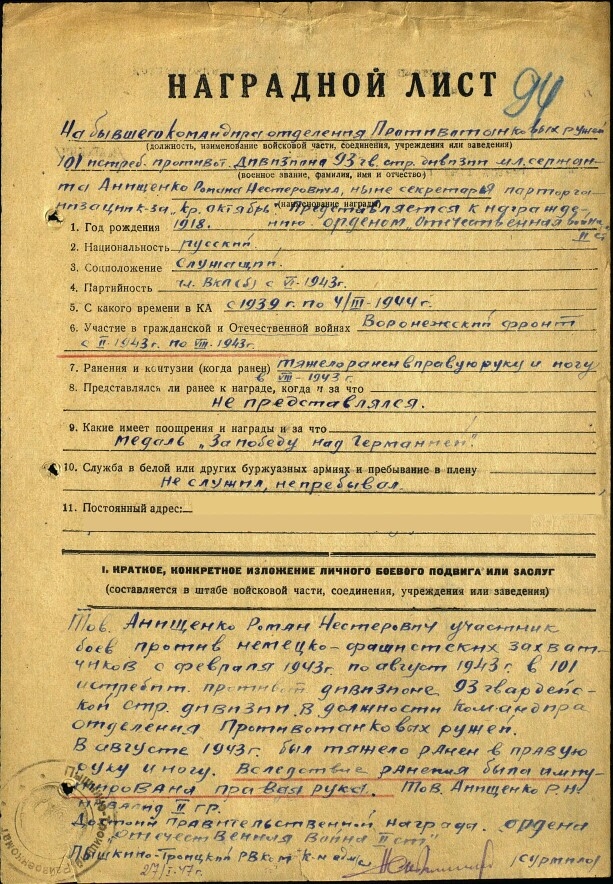 НАГРАДНОЙ ЛИСТ 94
На бывшего командира отделения Противотанковых ружей
(должность, наименование войсковой части, соединения, учреждения или заведения)
101 истреб. противот. дивизиона 93 гв. стр. дивизии мл. сержан-
(военное звание, фамилия, имя и отчество)
та Анищенко Романа Нестеровича, ныне секретаря парторга-
низации к-за "Кр. Октябрь" Представляется к награжде-
(наименование награды)
нию орденом "Отечественная война
II ст
1. Год рождения 1918.
2. Национальность русский.
3. Соцположение служащий.
4. Партийность чл. ВКП(б) с VI-1943г.
5. С какого времени в КА с 1939 г. по 4/III-1944г.
6. Участие в гражданской и Отечественной войнах Воронежский фронт
с II-1943г. по VIII-1943г.
7. Ранения и контузии (когда ранен) тяжело ранен в правую руку и ногу
в VIII-1943 г.
8. Представлялся ли ранее к награде, когда и за что
не представлялся.
9. Какие имеет поощрения и награды и за что
медаль "За победу над Германией".
10. Служба в белой или других буржуазных армиях и пребывание в плену
не служил, не пребывал.
11. Постоянный адрес:
I. КРАТКОЕ, КОНКРЕТНОЕ ИЗЛОЖЕНИЕ ЛИЧНОГО БОЕВОГО ПОДВИГА ИЛИ ЗАСЛУГ
(составляется в штабе войсковой части, соединения, учреждения или заведения)
Тов. Анищенко Роман Нестерович участник
боев против немецко-фашистских захват-
чиков с февраля 1943г. по август 1943г. в 101
истребит. противот. дивизионе 93 гвардейс-
кой стр. дивизии. В должности командира
отделения Противотанковах ружей.
В августе 1943г. был тяжело ранен в правую
руку и ногу. Вследствие ранения была ампу-
тирована правая рука. Тов. Анищенко Р.Н.
инвалид II гр.
Достоин правительственный награда. ордена
"Отечественная война II ст"
Пышкино-Троицкий РВК
27/I-47г.